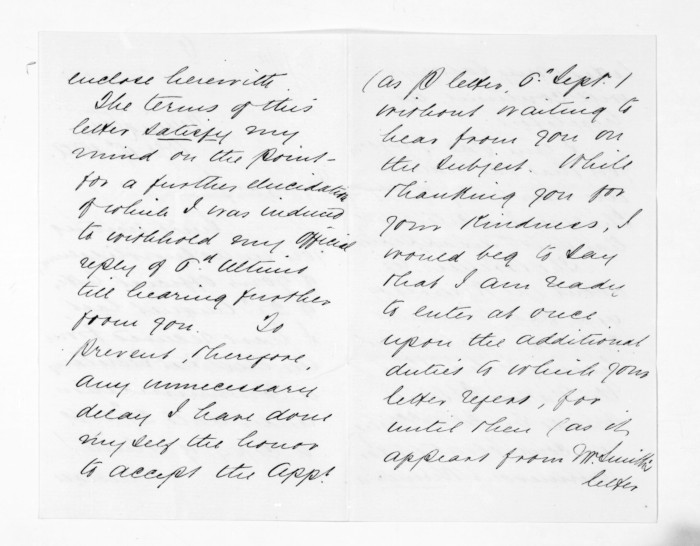 enclose herewith.
The terms of this
letter satisfy my
mind on the point -
for a further elucidation
of which I was induced
to withhold my Official
reply of 6th Ultimo
till hearing further
from you. To
prevent, therefore,
any unnecessary
delay I have done
myself the honor
to accept the Appt.
(as letter, 6th Sept.)
without waiting to
hear from you on
the subject. While
thanking you for
your kindness, I
would beg to say
that I am ready
to enter at once
upon the additional
duties to which your
letter refers, for
until then (as it
appears from Mr. Smith's
letter